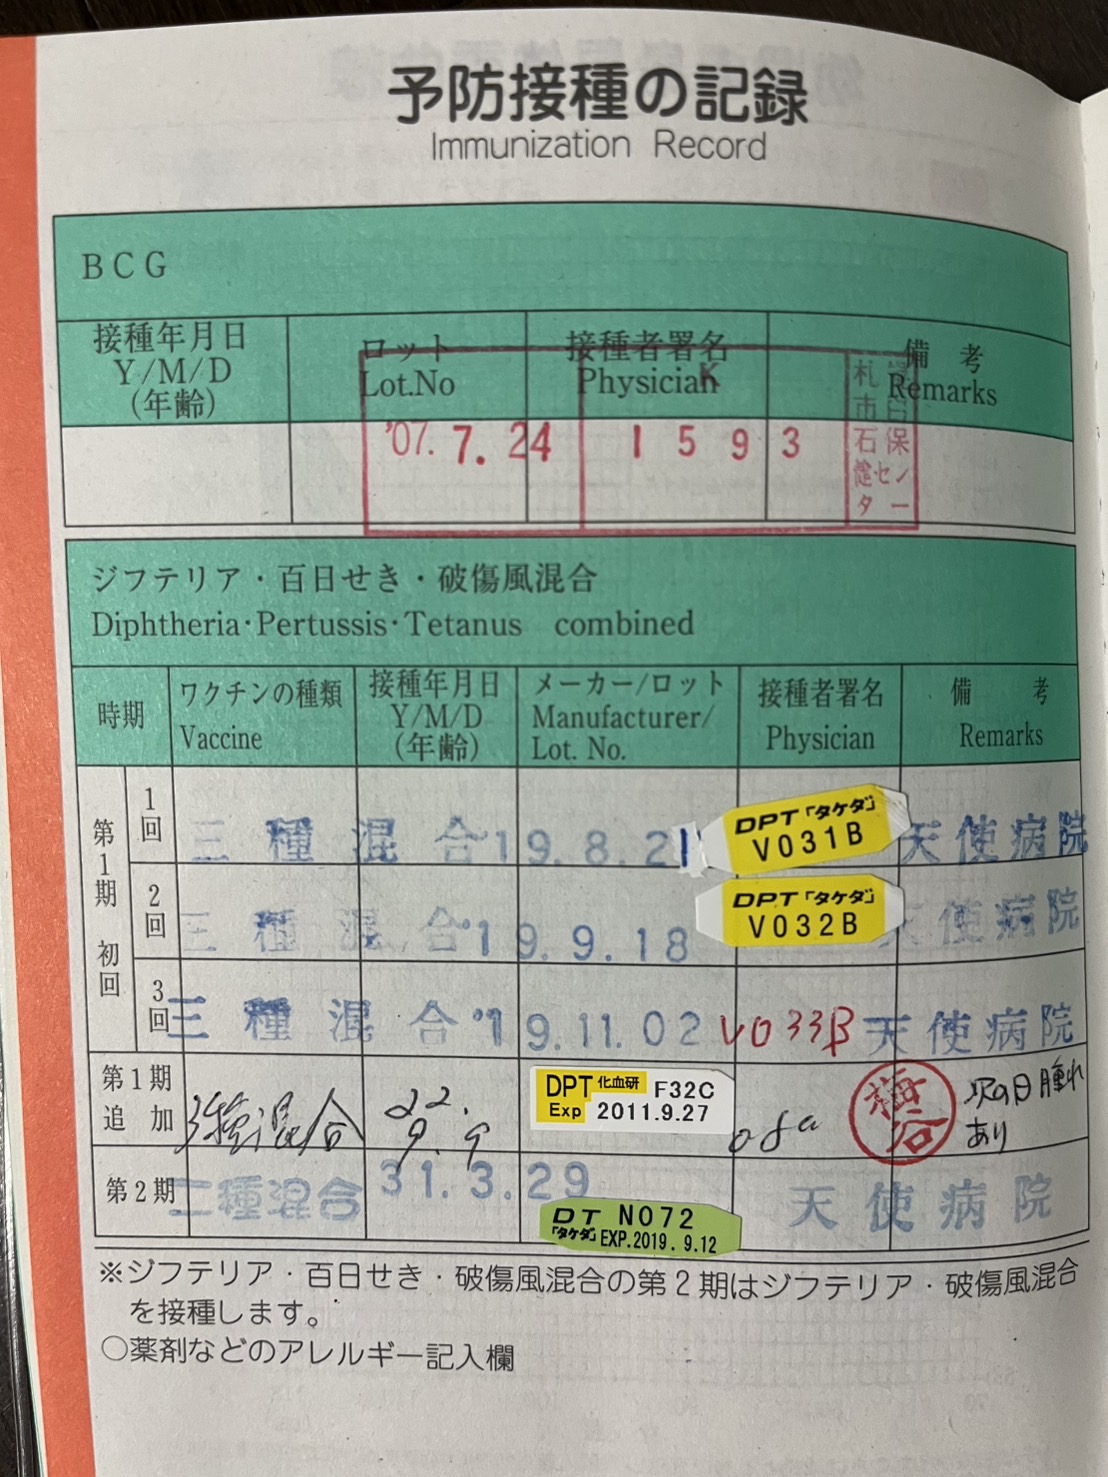 予防接種の記録
Immunization Record
BCG
接種年月日
Y/M/D
(年齢)
ロット
Lot.No
接種者署名
Physician
K
備 考
Remarks
'07. 7. 24
1 5 9 3
札幌
市白
石保
健セン
ター
ジフテリア・百日せき・破傷風混合
Diphtheria・Pertussis・Tetanus combined
時期
ワクチンの種類
Vaccine
接種年月日
Y/M/D
(年齢)
メーカー/ロット
Manufacturer/
Lot. No.
接種者署名
Physician
備 考
Remarks
第1期 初回
1回
三種混合 '19.8.21
DPT「タケダ」
V031B
天使病院
2回
三種混合 '19.9.18
DPT「タケダ」
V032B
天使病院
3回
三種混合 '19.11.02
V033B
天使病院
第1期
追 加
3種混合
22.
9.9
DPT 化血研 F32C
Exp 2011.9.27
梅谷
次の日腫れ
あり
第2期
二種混合
31.3.29
DT N072
「タケダ」EXP.2019.9.12
天使病院
※ジフテリア・百日せき・破傷風混合の第2期はジフテリア・破傷風混合
を接種します。
○薬剤などのアレルギー記入欄